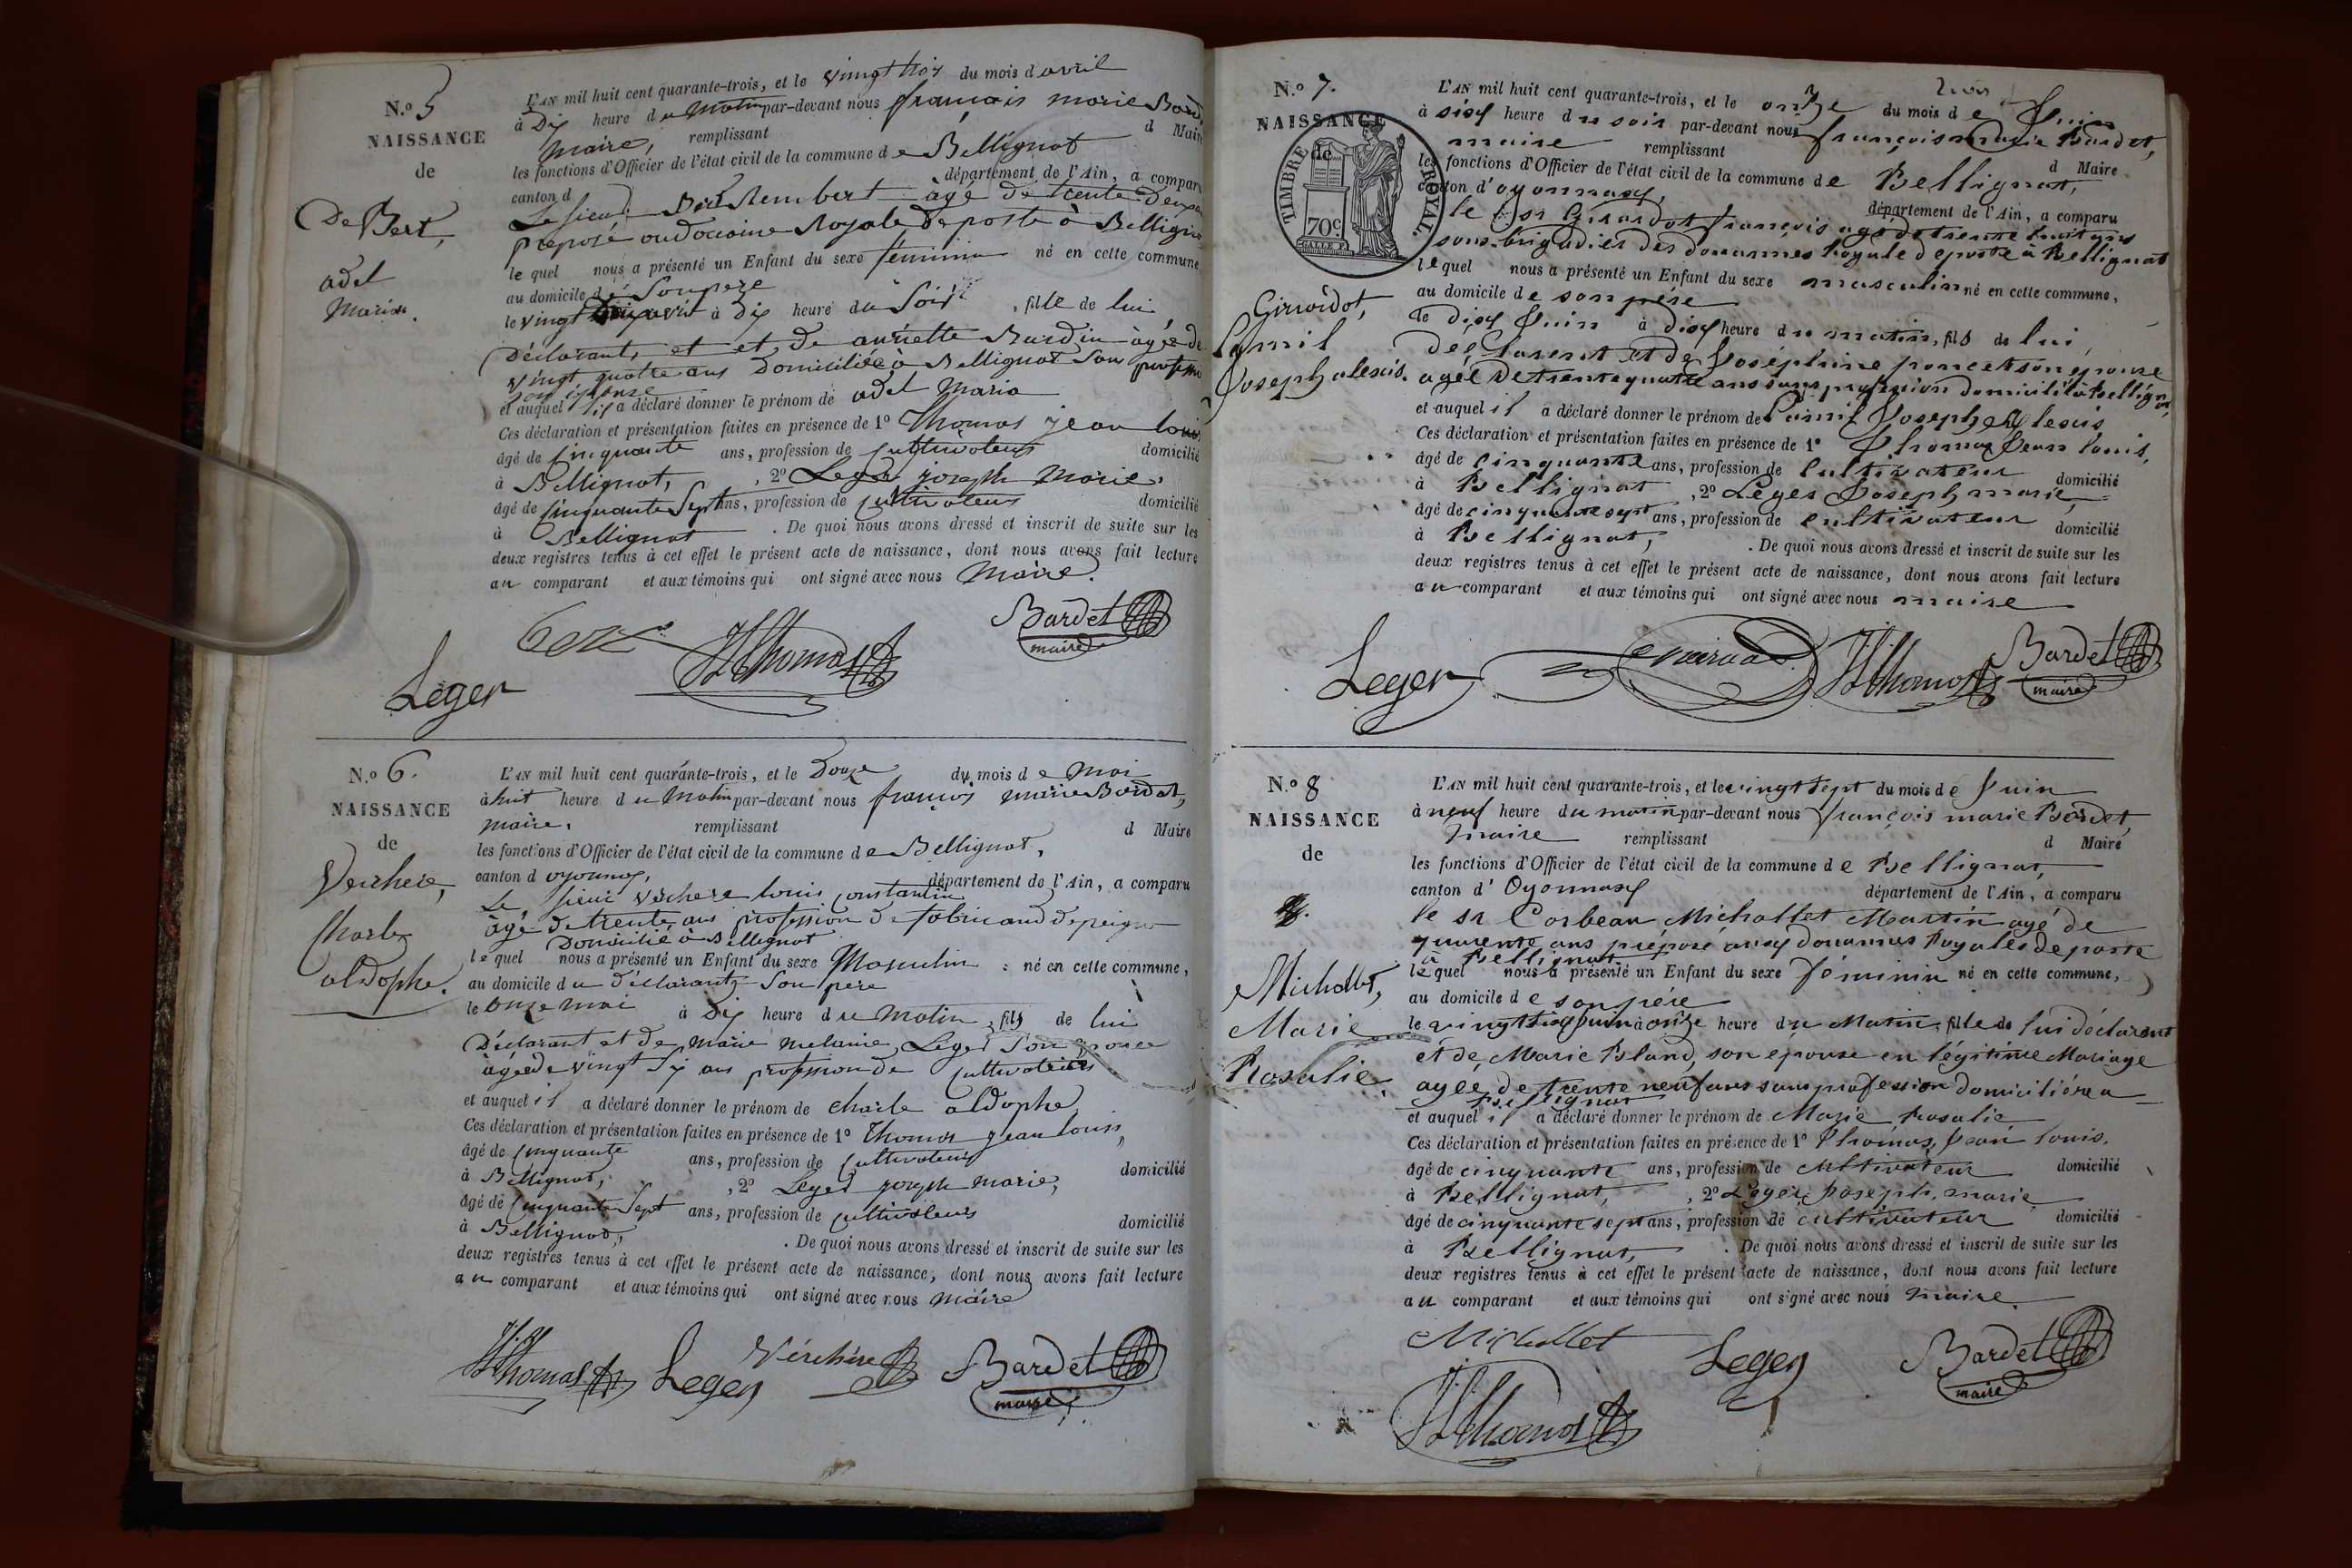 N.o 5
NAISSANCE
de
De Bert,
adel
Maria.
L'AN mil huit cent quarante-trois, et le vingt trois du mois d avril
à Dix heure du Matin par-devant nous françois marie Bard
Maire, remplissant d Maire
les fonctions d'Officier de l'état civil de la commune de Bellignat
canton d département de l'Ain, a comparu
Le sieur Rembert âgé de trente deux
preposé audouaine Royale de poste à Bellignat
le quel nous a présenté un Enfant du sexe feminin né en cette commune
au domicile de Son pere
le vingt avril à Dix heure du Soir, fille de lui
Déclarant, et et de annette Burdin âgée de
vingt quatre ans Domiciliée à Bellignat San profession
son épouse
et auquel il a déclaré donner le prénom de adel Maria
Ces déclaration et présentation faites en présence de 1º Thomas jean louis
âgé de cinquante ans, profession de cultivateur domicilié
à Bellignat, , 2º Leger joseph Marie,
âgé de cinquante Sept ans, profession de cultivateur domicilié
à Bellignat . De quoi nous avons dressé et inscrit de suite sur les
deux registres tenus à cet effet le présent acte de naissance, dont nous avons fait lecture
au comparant et aux témoins qui ont signé avec nous Maire.
Bert JLThomas Bardet
maire
Leger
N.o 6.
NAISSANCE
de
Verchere,
Charle
aldophe.
L'AN mil huit cent quarante-trois, et le Douze du mois de Mai
à huit heure du Matin par-devant nous françois marie Bardet,
maire, remplissant d Maire
les fonctions d'Officier de l'état civil de la commune de Bellignat,
canton d oyonnax, département de l'Ain, a comparu
Le sieur Verchere louis constantin
âgé de trente ans profession de fabricand de peigne
Domicilié à Bellignat
le quel nous a présenté un Enfant du sexe Masculin né en cette commune,
au domicile du déclarant Son père
le onze mai à Dix heure du Matin, fils de lui
Déclarant et de Marie Melanie Leger Son épouse
âgée de vingt Six ans profession de cultivateurs
et auquel il a déclaré donner le prénom de Charle aldophe
Ces déclaration et présentation faites en présence de 1º Thomas jean louis,
âgé de cinquante ans, profession de cultivateur domicilié
à Bellignat, , 2º Leger joseph Marie,
âgé de cinquante Sept ans, profession de cultivateur domicilié
à Bellignat, . De quoi nous avons dressé et inscrit de suite sur les
deux registres tenus à cet effet le présent acte de naissance, dont nous avons fait lecture
au comparant et aux témoins qui ont signé avec nous Maire
JLThomas Leger Vérchére Bardet
maire
N.o 7.
NAISSANCE
de
TIMBRE ROYAL.
70c
Girardot,
Camil
Joseph alexis.
L'AN mil huit cent quarante-trois, et le onze du mois de Juin
à six heure du soir par-devant nous françois marie Bardet,
maire remplissant d Maire
les fonctions d'Officier de l'état civil de la commune de Bellignat,
canton d'oyonnax, département de l'Ain, a comparu
le sr Girardot françois agé de trente huit ans
sous-brigadier des douannes Royale de poste à Bellignat
lequel nous a présenté un Enfant du sexe masculin né en cette commune,
au domicile de son père
le dix Juin à dix heure du matin, fils de lui
déclarent et de Joséphine poncet son épouse
agée de trente quatre ans sans profession domicilié à Bellignat,
et auquel il a déclaré donner le prénom de Camil Joseph Alexis
Ces déclaration et présentation faites en présence de 1º Thomas Jean louis,
âgé de cinquante ans, profession de cultivateur domicilié
à Bellignat , 2º Léger Joseph marie,
âgé de cinquante sept ans, profession de cultivateur domicilié
à Bellignat, . De quoi nous avons dressé et inscrit de suite sur les
deux registres tenus à cet effet le présent acte de naissance, dont nous avons fait lecture
au comparant et aux témoins qui ont signé avec nous maire
Leger JLThomas Bardet
maire
N.o 8
NAISSANCE
de
Michallet,
Marie
Rosalie
L'AN mil huit cent quarante-trois, et le vingt sept du mois de Juin
à neuf heure du matin par-devant nous François marie Bardet,
maire remplissant d Maire
les fonctions d'Officier de l'état civil de la commune de Bellignat,
canton d' Oyonnax département de l'Ain, a comparu
le sr Corbeau Michallet Martin agé de
quarente ans préposé aux douannes Royales de poste
à Bellignat
lequel nous a présenté un Enfant du sexe féminin né en cette commune,
au domicile de son père
le vingt six Juin à onze heure du Matin, fille de lui déclarent
et de Marie Bland, son épouse en légitime Mariage
agée de trente neuf ans sans profession domiciliére a
Bellignat
et auquel il a déclaré donner le prénom de Marie Rosalie
Ces déclaration et présentation faites en présence de 1º Thomas, Jean louis,
âgé de cinquante ans, profession de cultivateur domicilié
à Bellignat, , 2º Leger, Joseph, marie
âgé de cinquante sept ans, profession de cultivateur domicilié
à Bellignat, . De quoi nous avons dressé et inscrit de suite sur les
deux registres tenus à cet effet le présent acte de naissance, dont nous avons fait lecture
au comparant et aux témoins qui ont signé avec nous maire
Michallet Leger Bardet
maire
JLThomas